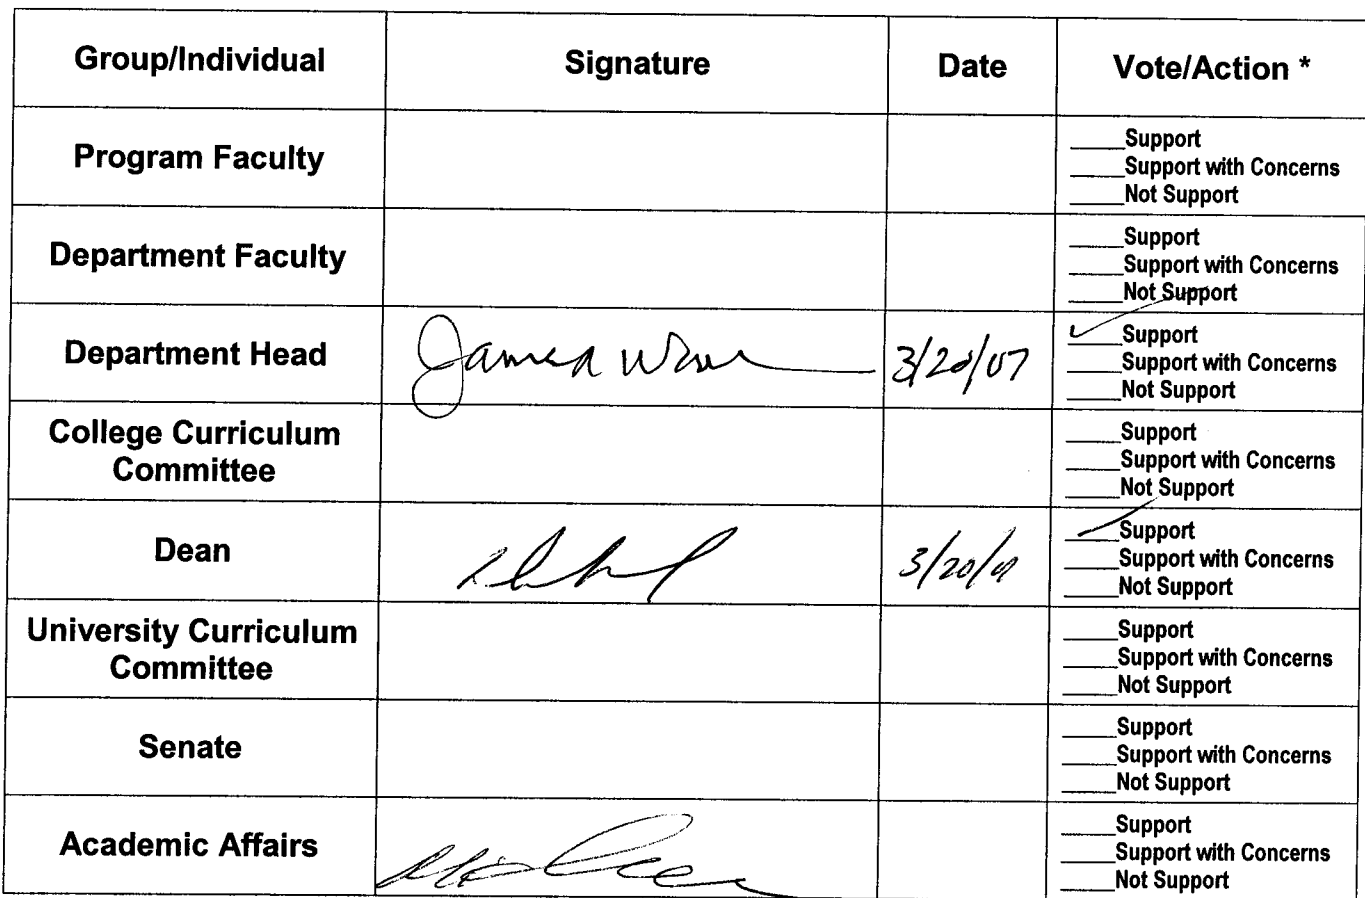 Group/Individual Signature Date Vote/Action *
Program Faculty
____Support
____Support with Concerns
____Not Support
Department Faculty
____Support
____Support with Concerns
____Not Support
Department Head James 3/20/07
____Support
____Support with Concerns
____Not Support
College Curriculum
Committee
____Support
____Support with Concerns
____Not Support
Dean 3/20/07
____Support
____Support with Concerns
____Not Support
University Curriculum
Committee
____Support
____Support with Concerns
____Not Support
Senate
____Support
____Support with Concerns
____Not Support
Academic Affairs
____Support
____Support with Concerns
____Not Support